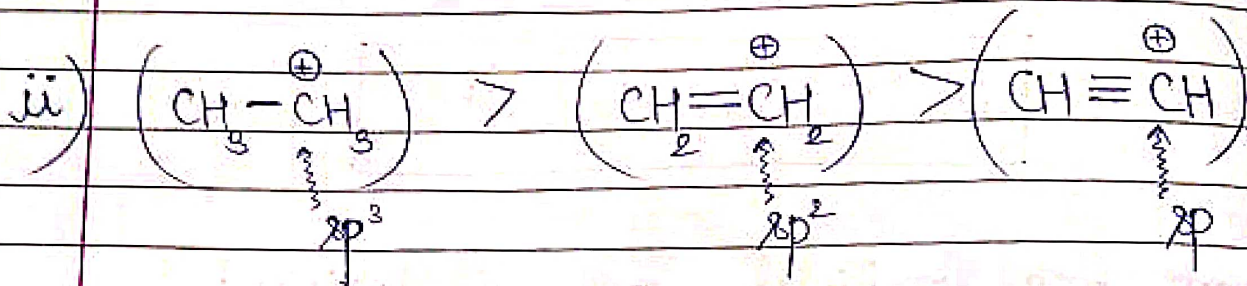 ii) (CH₃–C⊕H₃) > (CH₂=C⊕H₂) > (CH≡C⊕H)
sp³ sp² sp